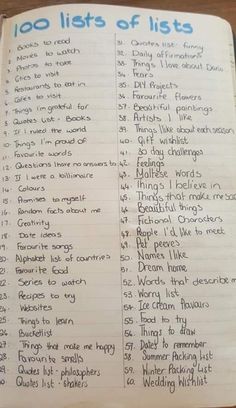 100 lists of lists
1. Books to read
2. Movies to watch
3. Photos to take
4. Cities to visit
5. Restaurants to eat in
6. Cafes to visit
7. Things I'm grateful for
8. Quotes list - Books
9. If I ruled the world
10. Things I'm proud of
11. Favourite words
12. Questions I have no answers to
13. If I were a billionaire
14. Colours
15. Promises to myself
16. Random facts about me
17. Creativity
18. Date ideas
19. Favourite songs
20. Alphabet list of countries
21. Favourite food
22. Series to watch
23. Recipes to try
24. Websites
25. Things to learn
26. Bucketlist
27. Things that make me happy
28. Favourite smells
29. Quotes list - philosophers
30. Quotes list - shakers
31. Quotes list - funny
32. Daily affirmations
33. Things I love about
34. Fears
35. DIY Projects
36. Favourite flowers
37. Beautiful paintings
38. Artists I like
39. Things I like about each season
40. Gift wishlist
41. 30 day challenges
42. Feelings
43. Maltese words
44. Things I believe in
45. Things that make me sad
46. Beautiful things
47. Fictional Characters
48. People I'd like to meet
49. Pet peeves
50. Names I like
51. Dream home
52. Words that describe m
53. Worry list
54. Ice cream flavours
55. Food to try
56. Things to draw
57. Dates to remember
58. Summer Packing list
59. Winter Packing List
60. Wedding Wishlist